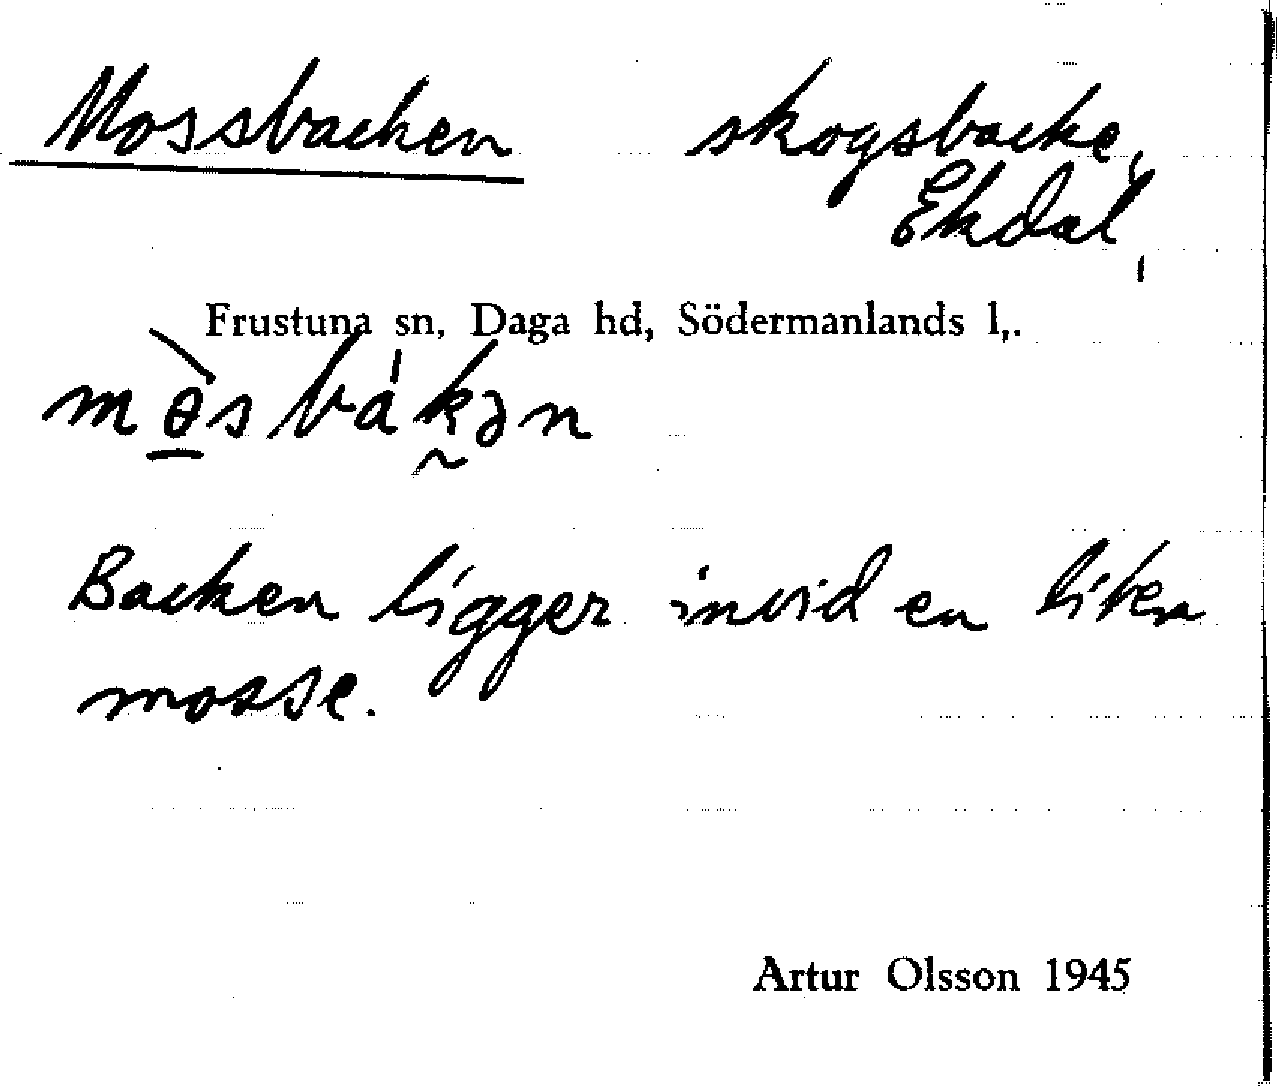 Mossbacken skogsbacke,
Ekdal,
Frustuna sn, Daga hd, Södermanlands l,.
mɵ̀sbákən
Backen ligger invid en liten
mosse.
Artur Olsson 1945